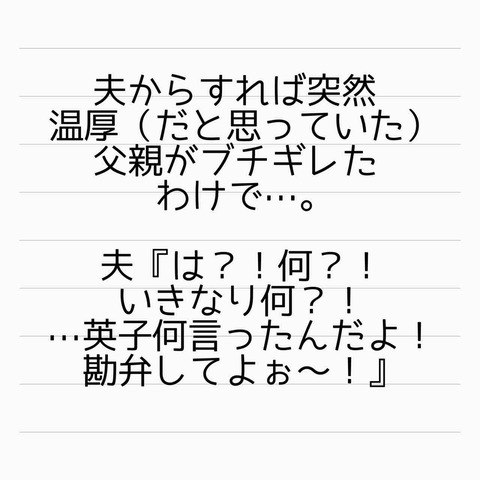 夫からすれば突然
温厚（だと思っていた）
父親がブチギレた
わけで…。
夫『は？！何？！
いきなり何？！
…英子何言ったんだよ！
勘弁してよぉ～！』